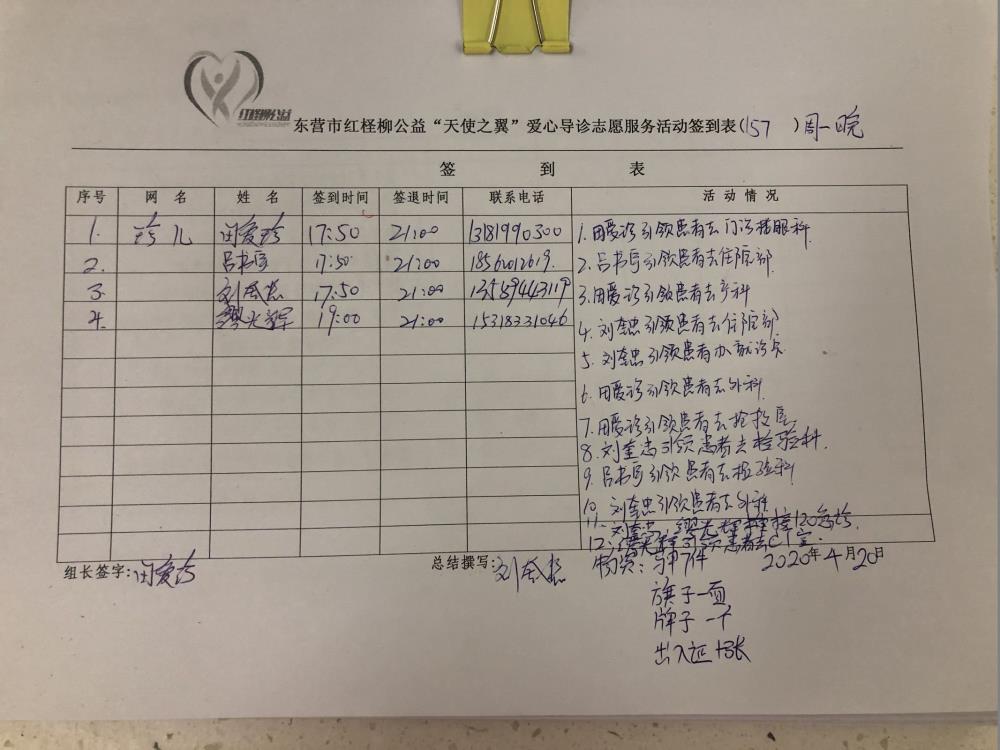 红柽柳公益
东营市红柽柳公益“天使之翼”爱心导诊志愿服务活动签到表(157 )周一晚
签 到 表
序号 网 名 姓 名 签到时间 签退时间 联系电话 活 动 情 况
1. 珍儿 田爱珍 17:50 21:00 13181990300
2. 吕书亭 17:50 21:00 18562012619.
3. 刘奎忠 17:50 21:00 13589443119
4. 光辉 19:00 21:00 15318331046
1. 田爱珍引领患者去门诊楼眼科.
2. 吕书亭引领患者去住院部
3. 田爱珍引领患者去产科
4. 刘奎忠引领患者去住院部
5. 刘奎忠引领患者办就诊卡
6. 田爱珍引领患者去外科
7. 田爱珍引领患者去抢救
8. 刘奎忠引领患者去检验科.
9. 吕书亭引领患者去检验科
10. 刘奎忠引领患者去外科
11. 刘奎忠, 光辉 接120急诊.
12. 光辉引领患者去CT室.
组长签字: 田爱珍 总结撰写: 刘奎忠 物资: 马甲7件 2020年4月20日
旗子一面
牌子一个
出入证 张